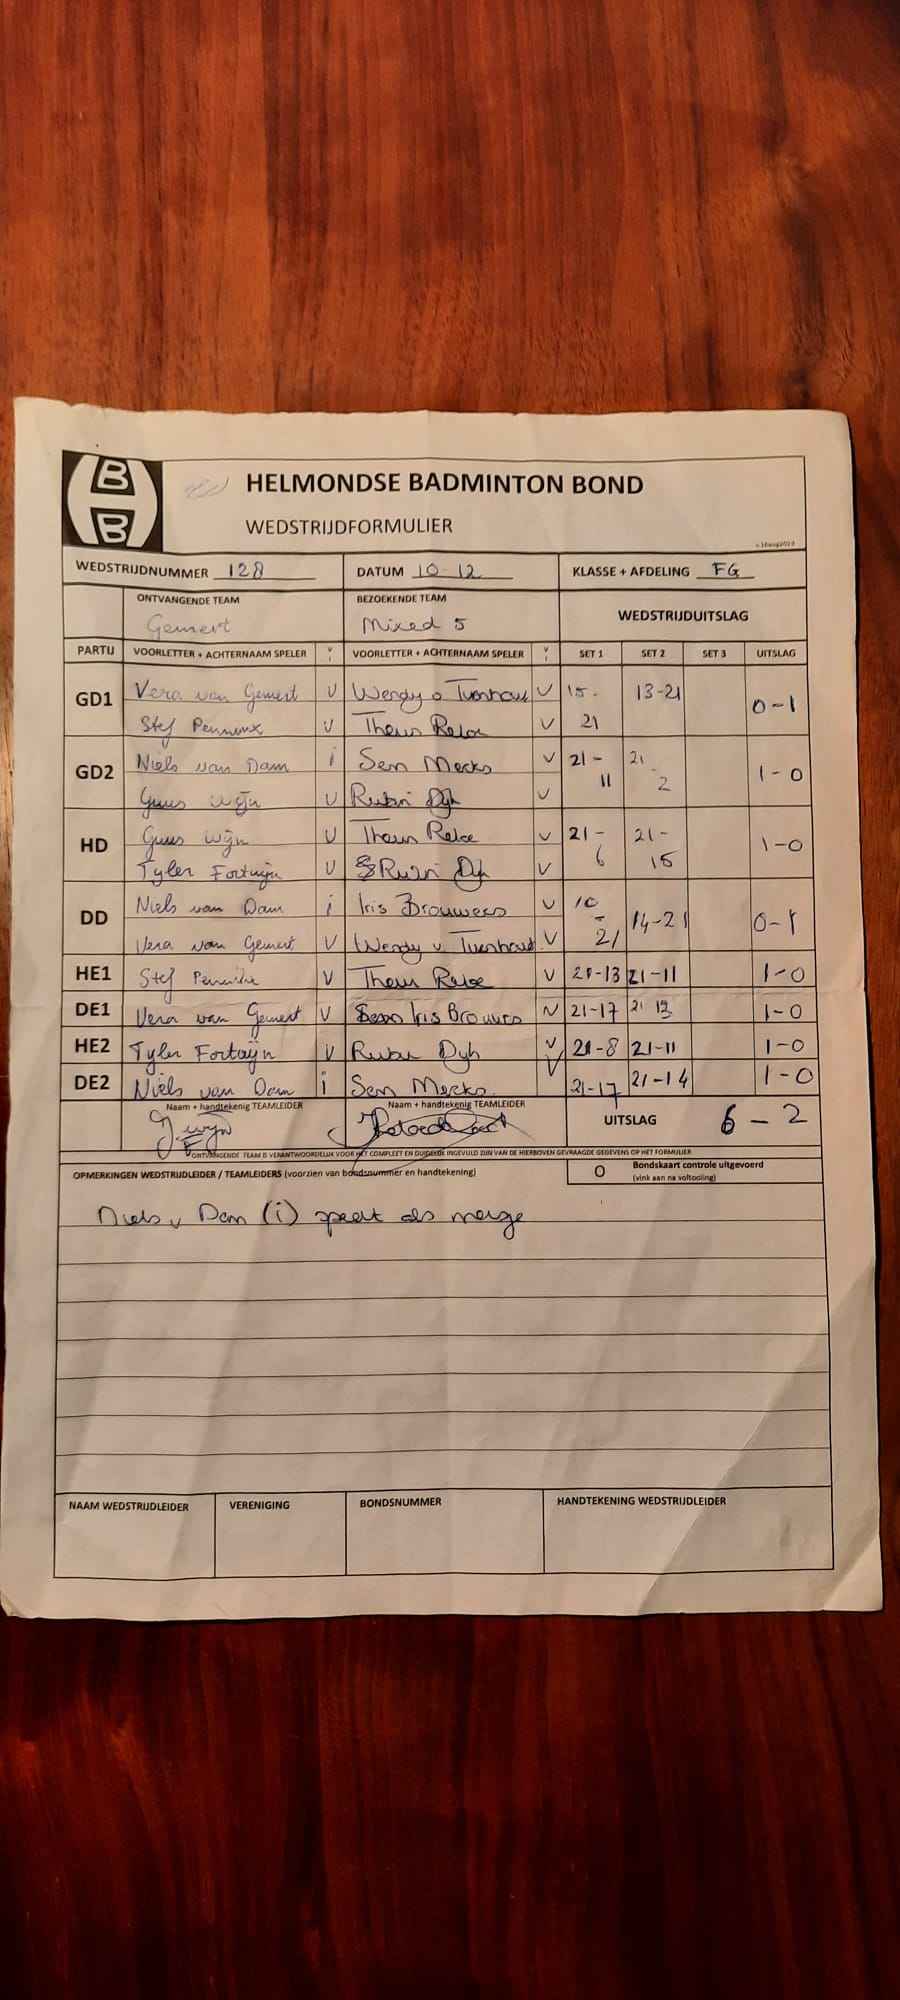 B
B
HELMONDSE BADMINTON BOND
WEDSTRIJDFORMULIER
WEDSTRIJDNUMMER 128 DATUM 10-12 KLASSE + AFDELING FG
ONTVANGENDE TEAM BEZOEKENDE TEAM WEDSTRIJDUITSLAG
Gemert Mixed 5
PARTIJ VOORLETTER + ACHTERNAAM SPELER V/I VOORLETTER + ACHTERNAAM SPELER V/I SET 1 SET 2 SET 3 UITSLAG
GD1 Vera van Gemert V Wendy v Turnhout V 15-21 13-21 0-1
Stef Penninx V Theun V
GD2 Niels van Dam i Sem Merks V 21-11 21-2 1-0
Guus Wijn V Dijk V
HD Guus Wijn V Theun V 21-6 21-15 1-0
Tyler Fortuijn V Dijk V
DD Niels van Dam i Iris Brouwers V 10-21 14-21 0-1
Vera van Gemert V Wendy v Turnhout V
HE1 Stef V Theun V 21-13 21-11 1-0
DE1 Vera van Gemert V Iris Brouwers V 21-17 21-13 1-0
HE2 Tyler Fortuijn V Dijk V 21-8 21-11 1-0
DE2 Niels van Dam i Sem Merks V 21-17 21-14 1-0
Naam + handtekenig TEAMLEIDER Naam + handtekenig TEAMLEIDER
UITSLAG 6-2
ONTVANGENDE TEAM IS VERANTWOORDELIJK VOOR HET COMPLEET EN DUIDELIJK INGEVULD ZIJN VAN DE HIERBOVEN GEVRAAGDE GEGEVENS OP HET FORMULIER
OPMERKINGEN WEDSTRIJDLEIDER / TEAMLEIDERS (voorzien van bondsnummer en handtekening) O Bondskaart controle uitgevoerd
(vink aan na voltooiing)
Niels v Dam (i) speelt als meisje
NAAM WEDSTRIJDLEIDER VERENIGING BONDSNUMMER HANDTEKENING WEDSTRIJDLEIDER